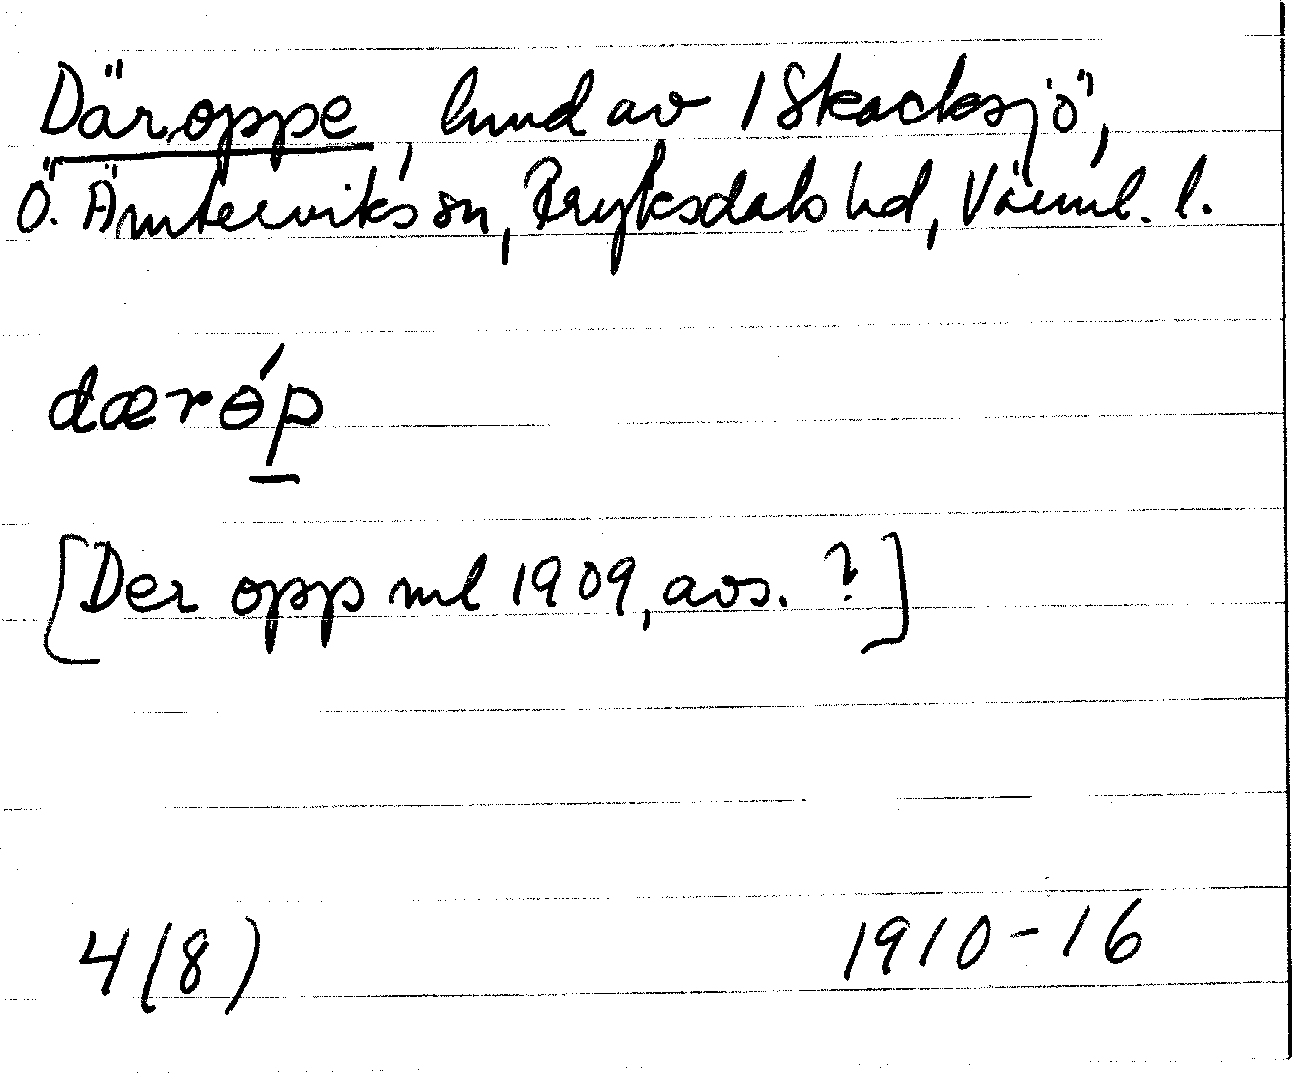 Däroppe, hmd av 1 Skacksjö,
Ö. Ämterviks sn, Fryksdals hd, Värml. l.
dærɵ́p
[Der opp ml 1909, avs. ?]
4(8) 1910-16